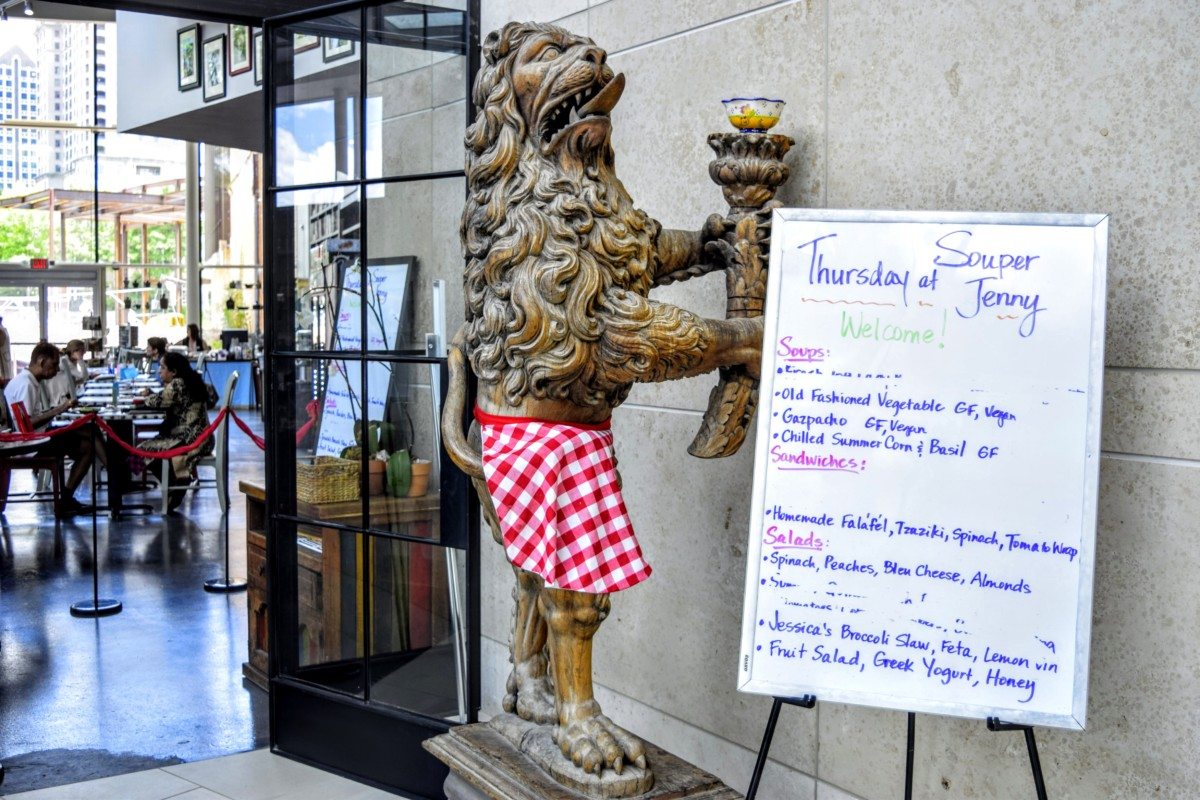 Thursday at Souper Jenny
Welcome!
Soups:
• Old Fashioned Vegetable GF, Vegan
• Gazpacho GF, Vegan
• Chilled Summer Corn & Basil GF
Sandwiches:
• Homemade Falafel, Tzaziki, Spinach, Tomato Wrap
Salads:
• Spinach, Peaches, Bleu Cheese, Almonds
• Jessica's Broccoli Slaw, Feta, Lemon vin
• Fruit Salad, Greek Yogurt, Honey
EXIT